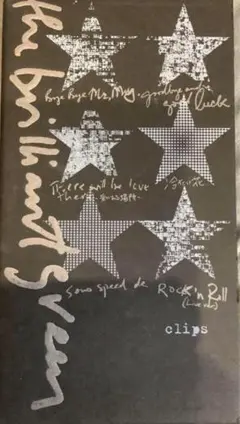 the brilliant green
Bye Bye Mr. Mug
goodbye and good luck
There will be love
there -愛のある場所-
冷たい花
Sono speed de
Rock'n Roll
(Live ver.)
clips